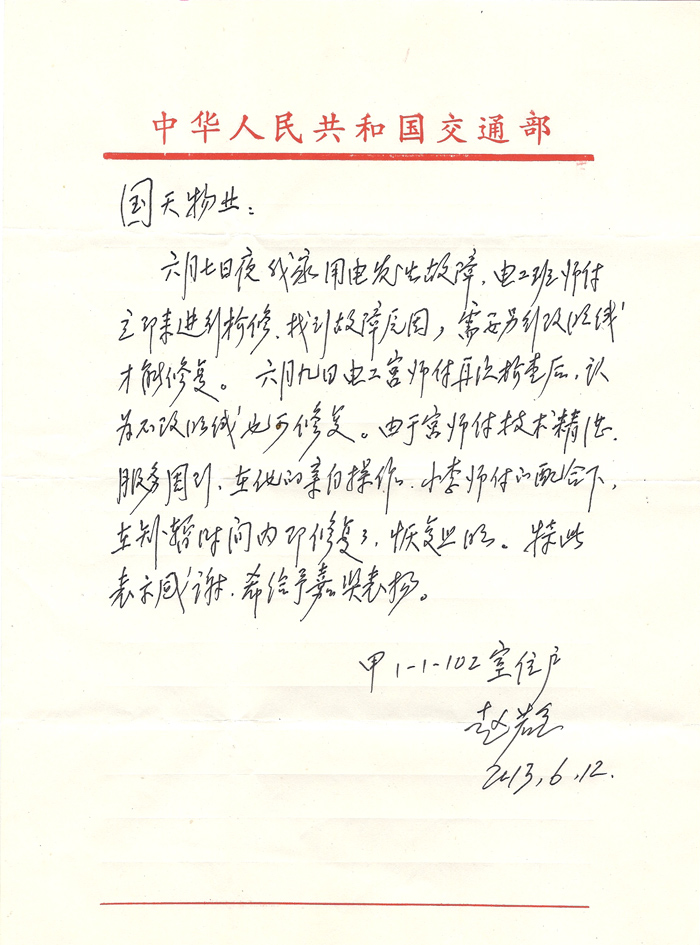 中华人民共和国交通部
国天物业：
六月七日夜我家用电发生故障，电工班师付
立即来进行检修，找到故障原因，需要另引改明线
才能修复。六月九日电工宫师付再次检查后，认
为不改明线也可修复。由于宫师付技术精湛，
服务周到，在他的亲自操作，小李师付的配合下，
在短暂时间内即修复了，恢复照明。特此
表示感谢，希给予嘉奖表扬。
甲1-1-102室住户
赵
2013.6.12.